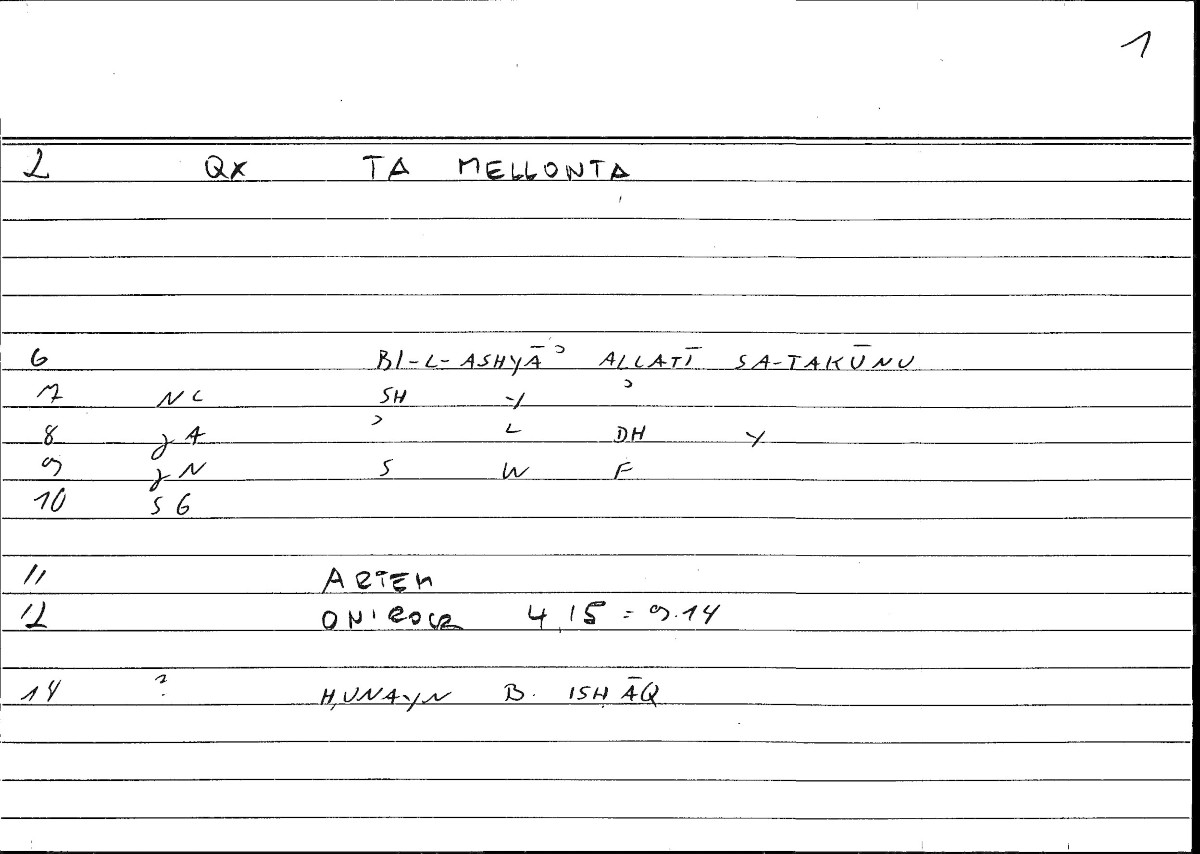 1
2 QX TA MELLONTA
6 BI-L-ASHYĀʾ ALLATĪ SA-TAKŪNU
7 NC SH Y ʾ
8 JA ʾ L DH Y
9 JN S W F
10 SG
11 ARTEM
12 ONIROCR 4,15 = 9.14
14 ? ḤUNAYN B. ISḤĀQ